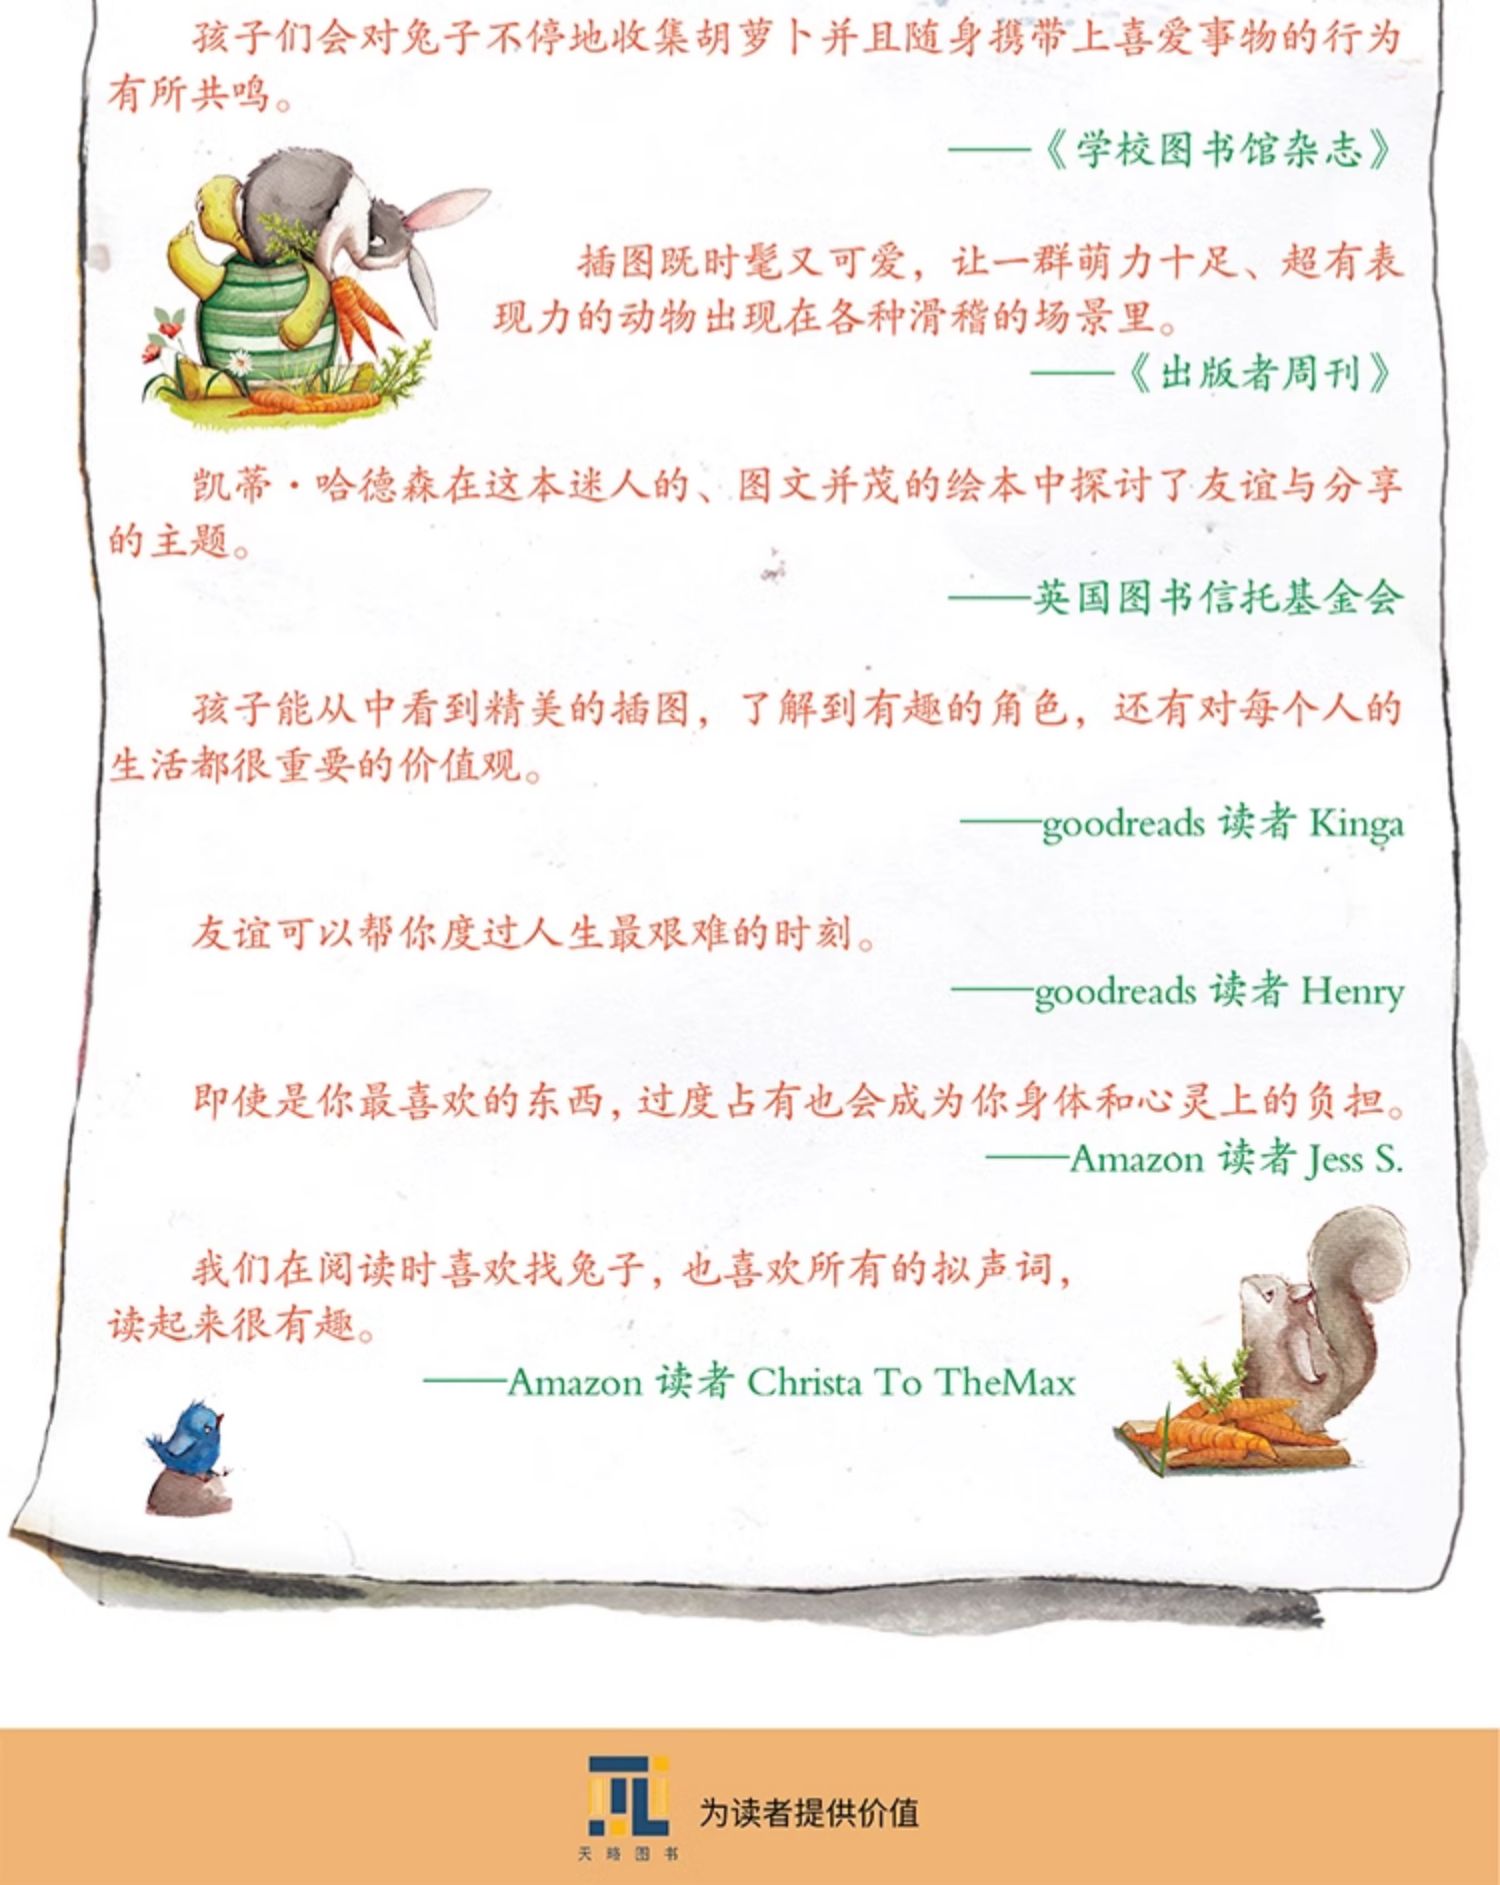 孩子们会对兔子不停地收集胡萝卜并且随身携带上喜爱事物的行为
有所共鸣。
——《学校图书馆杂志》
插图既时髦又可爱，让一群萌力十足、超有表
现力的动物出现在各种滑稽的场景里。
——《出版者周刊》
凯蒂·哈德森在这本迷人的、图文并茂的绘本中探讨了友谊与分享
的主题。
——英国图书信托基金会
孩子能从中看到精美的插图，了解到有趣的角色，还有对每个人的
生活都很重要的价值观。
——goodreads 读者 Kinga
友谊可以帮你度过人生最艰难的时刻。
——goodreads 读者 Henry
即使是你最喜欢的东西，过度占有也会成为你身体和心灵上的负担。
——Amazon 读者 Jess S.
我们在阅读时喜欢找兔子，也喜欢所有的拟声词，
读起来很有趣。
——Amazon 读者 Christa To TheMax
为读者提供价值
天略图书